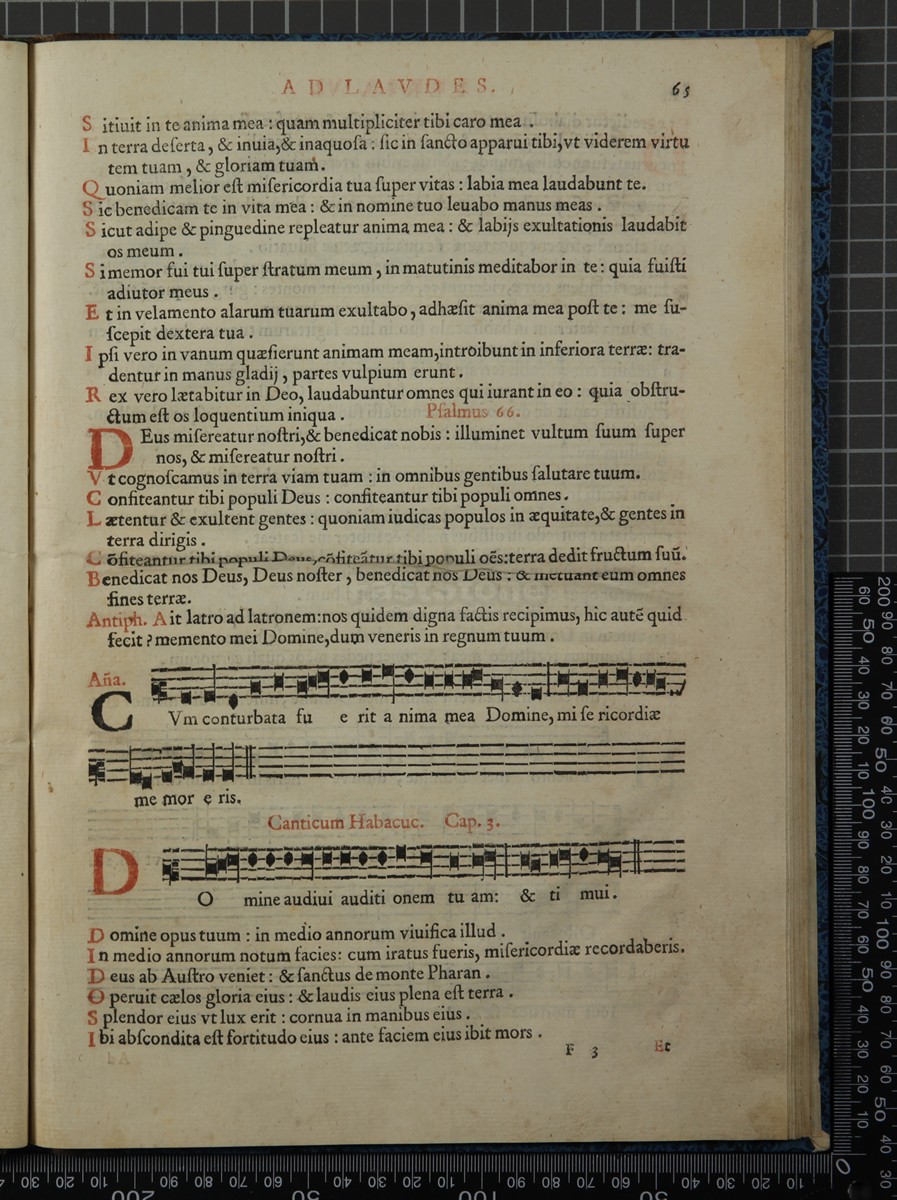 AD LAVDES.
65
Sitiuit in te anima mea : quam multipliciter tibi caro mea .
In terra deſerta, & inuia,& inaquoſa : ſic in ſancto apparui tibi,vt viderem virtu
tem tuam , & gloriam tuam.
Quoniam melior eſt miſericordia tua ſuper vitas : labia mea laudabunt te.
Sic benedicam te in vita mea : & in nomine tuo leuabo manus meas .
Sicut adipe & pinguedine repleatur anima mea : & labijs exultationis laudabit
os meum .
Si memor fui tui ſuper ſtratum meum , in matutinis meditabor in te : quia fuiſti
adiutor meus .
Et in velamento alarum tuarum exultabo, adhæſit anima mea poſt te : me ſu-
ſcepit dextera tua .
Ipſi vero in vanum quæſierunt animam meam,introibunt in inferiora terræ: tra-
dentur in manus gladij , partes vulpium erunt .
Rex vero lætabitur in Deo, laudabuntur omnes qui iurant in eo : quia obſtru-
ctum eſt os loquentium iniqua .
Pſalmus 66.
DEus miſereatur noſtri,& benedicat nobis : illuminet vultum ſuum ſuper
nos, & miſereatur noſtri .
Vt cognoſcamus in terra viam tuam : in omnibus gentibus ſalutare tuum.
Confiteantur tibi populi Deus : confiteantur tibi populi omnes .
Lætentur & exultent gentes : quoniam iudicas populos in æquitate,& gentes in
terra dirigis .
Cõfiteantur tibi populi Deus,cõfiteãtur tibi populi oẽs:terra dedit fructum ſuũ.
Benedicat nos Deus, Deus noſter , benedicat nos Deus : & metuant eum omnes
fines terræ.
Antiph. Ait latro ad latronem:nos quidem digna factis recipimus, hic autẽ quid
fecit ? memento mei Domine,dum veneris in regnum tuum .
Aña.
CVm conturbata fu e rit a nima mea Domine, mi ſe ricordiæ
me mor e ris.
Canticum Habacuc. Cap. 3.
DO mine audiui auditi onem tu am: & ti mui.
Domine opus tuum : in medio annorum viuifica illud .
In medio annorum notum facies: cum iratus fueris, miſericordiæ recordaberis.
Deus ab Auſtro veniet : & ſanctus de monte Pharan .
Operuit cælos gloria eius : & laudis eius plena eſt terra .
Splendor eius vt lux erit : cornua in manibus eius .
Ibi abſcondita eſt fortitudo eius : ante faciem eius ibit mors .
F 3
Et